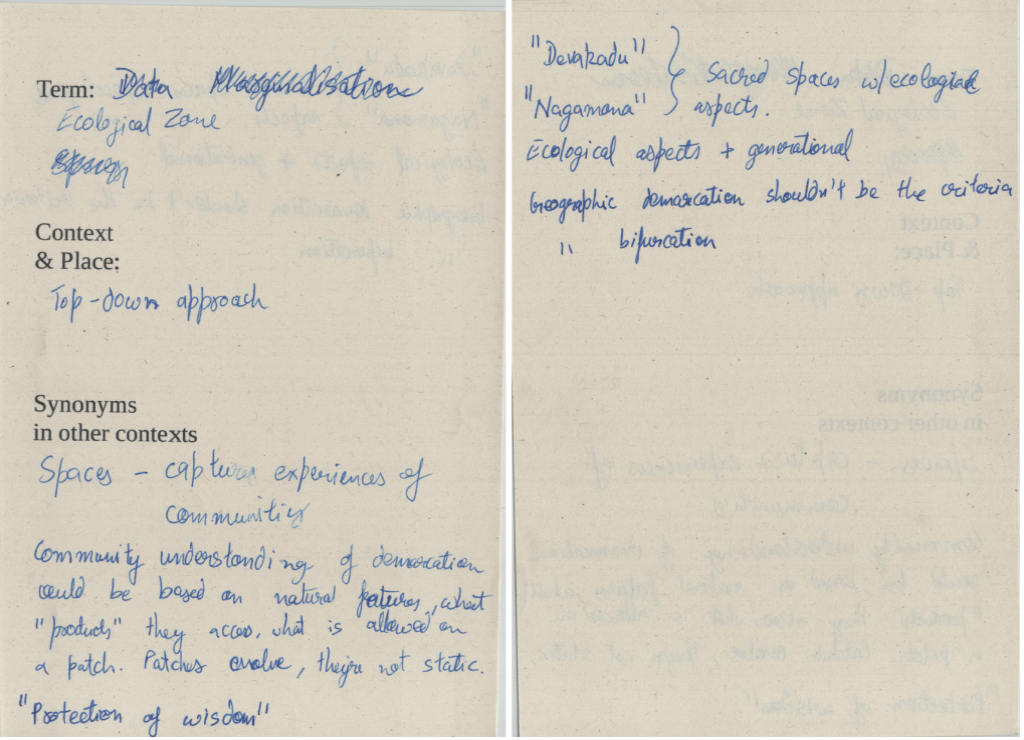 Term: Data
Ecological Zone
Context
& Place:
Top-down approach
Synonyms
in other contexts
Spaces - captures experiences of
communities
Community understanding of demarcation
could be based on natural features, what
"products" they access, what is allowed on
a patch. Patches evolve, they're not static.
"Protection of wisdom"
"Devakadu"
"Nagamana" } sacred spaces w/ecological
aspects.
Ecological aspects + generational
Geographic demarcation shouldn't be the criteria
" bifurcation